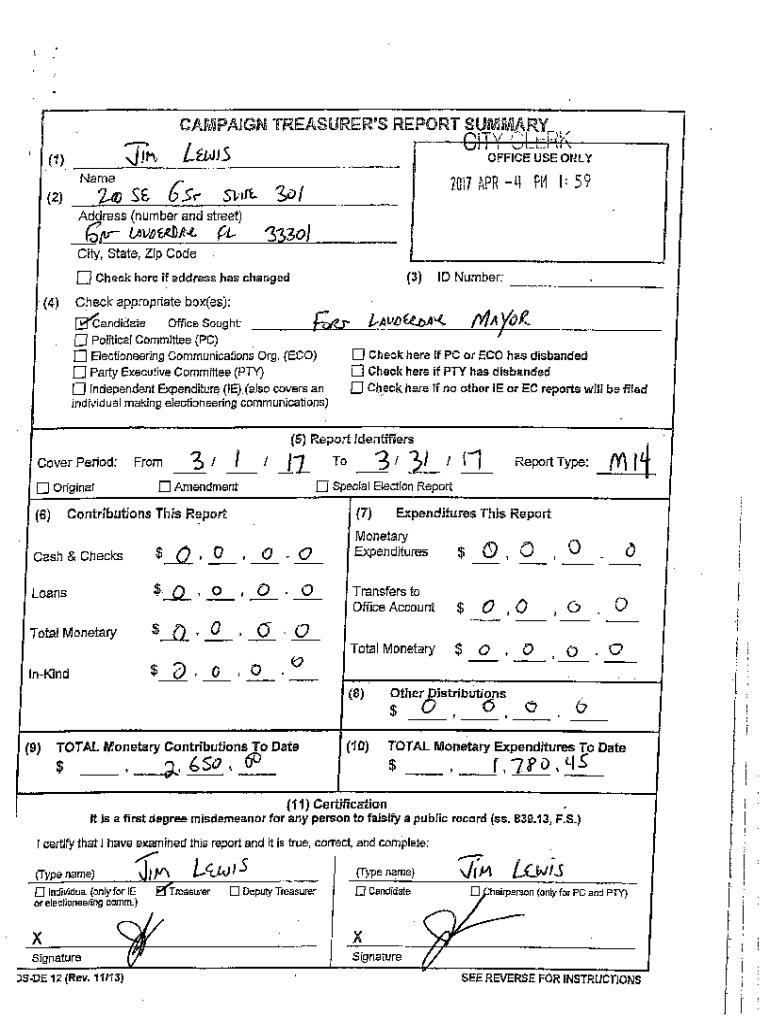 CAMPAIGN TREASURER'S REPORT SUMMARY
CITY CLERK
(1) Jim Lewis
OFFICE USE ONLY
Name
2017 APR -4 PM 1:59
(2) 200 SE 6 St Suite 301
Address (number and street)
Lauderdale FL 33301
City, State, Zip Code
Check here if address has changed
(3) ID Number:
(4) Check appropriate box(es):
Candidate Office Sought: Fort Lauderdale Mayor
Political Committee (PC)
Electioneering Communications Org. (ECO) Check here if PC or ECO has disbanded
Party Executive Committee (PTY) Check here if PTY has disbanded
Independent Expenditure (IE) (also covers an Check here if no other IE or EC reports will be filed
individual making electioneering communications)
(5) Report Identifiers
Cover Period: From 3 / 1 / 17 To 3 / 31 / 17 Report Type: M14
Original Amendment Special Election Report
(6) Contributions This Report
(7) Expenditures This Report
Monetary
Cash & Checks $ 0 , 0 , 0 . 0
Expenditures $ 0 , 0 , 0 . 0
Loans $ 0 , 0 , 0 . 0
Transfers to
Office Account $ 0 , 0 , 0 . 0
Total Monetary $ 0 , 0 , 0 . 0
Total Monetary $ 0 , 0 , 0 . 0
In-Kind $ 0 , 0 , 0 . 0
(8) Other Distributions
$ 0 , 0 , 0 . 0
(9) TOTAL Monetary Contributions To Date
$ , 2,650 . 00
(10) TOTAL Monetary Expenditures To Date
$ , 1,780.45
(11) Certification
It is a first degree misdemeanor for any person to falsify a public record (ss. 839.13, F.S.)
I certify that I have examined this report and it is true, correct, and complete:
(Type name) Jim Lewis
(Type name) Jim Lewis
Individual (only for IE Treasurer Deputy Treasurer
or electioneering comm.)
Candidate Chairperson (only for PC and PTY)
X
X
Signature
Signature
DS-DE 12 (Rev. 11/13)
SEE REVERSE FOR INSTRUCTIONS